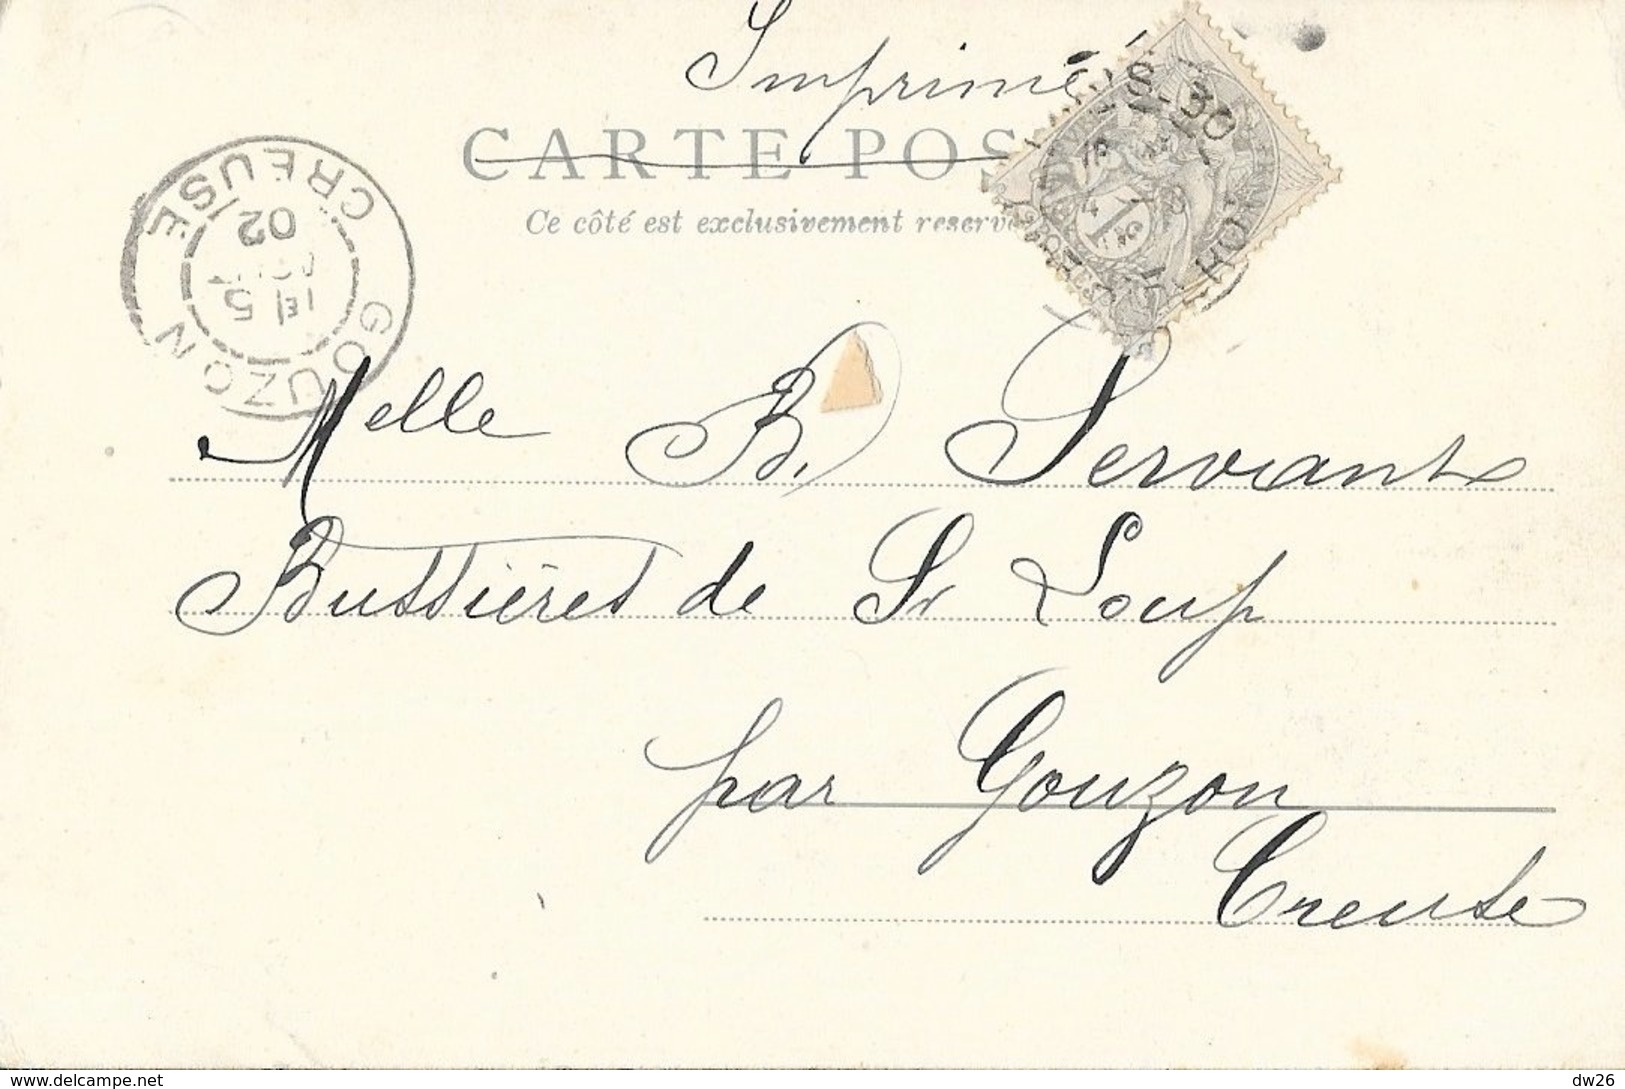 Imprimé
CARTE POS
Ce côté est exclusivement reservé
S-30
1
GOUZON
CREUSE
02
Melle B. Servant
Bussières de St Loup
par Gouzon
Creuse
dw26